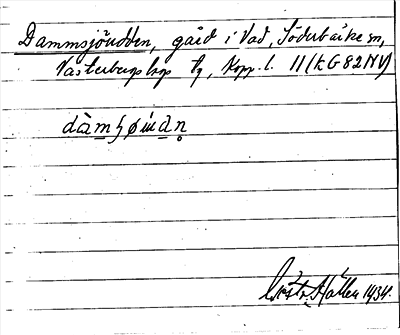 Dammsjöudden, gård i Vad, Söderbärke sn,
Västerbergslags tg, Kopp. l. 11 (KG 82 NV)
dàmʃøud̥n̥
Gösta Hallén 1934.